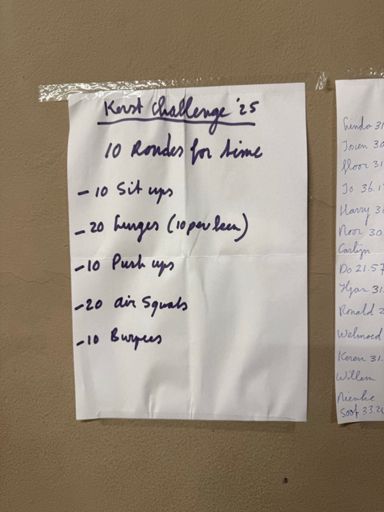 Kerst challenge '25
10 Rondes for time
- 10 Sit ups
- 20 Lunges (10 per been)
- 10 Push ups
- 20 air Squats
- 10 Burpees
Jouen 30
floor 31
Jo 36.1
Harry 3
Noor 30
Carlijn
Do 21.57
Ronald 2
Keren 31.
Willem
Nienke
Soof 33.20